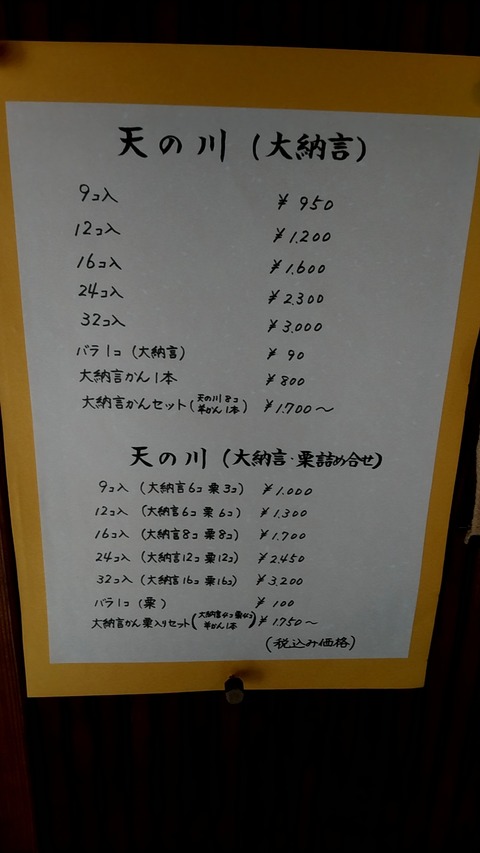 天の川(大納言)
9コ入 ¥950
12コ入 ¥1.200
16コ入 ¥1.600
24コ入 ¥2.300
32コ入 ¥3.000
バラ1コ(大納言) ¥90
大納言かん1本 ¥800
大納言かんセット(天の川8コ 羊かん1本) ¥1.700〜
天の川(大納言・栗詰め合せ)
9コ入(大納言6コ 栗3コ) ¥1.000
12コ入(大納言6コ 栗6コ) ¥1.300
16コ入(大納言8コ 栗8コ) ¥1.700
24コ入(大納言12コ 栗12コ) ¥2.450
32コ入(大納言16コ 栗16コ) ¥3.200
バラ1コ(栗) ¥100
大納言かん栗入りセット(大納言4コ 栗4コ 羊かん1本) ¥1.750〜
(税込み価格)